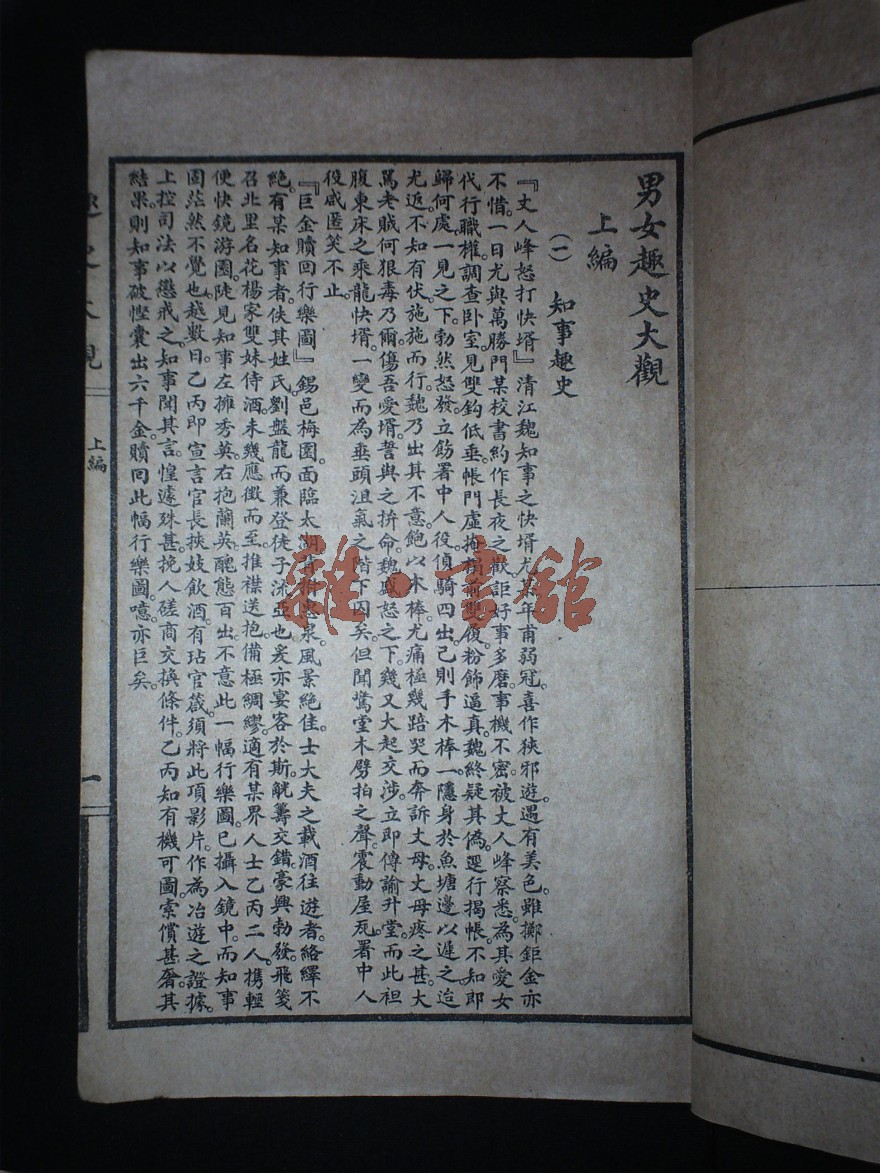 男女趣史大觀
上編
(一) 知事趣史
『丈人峰怒打快壻』清江魏知事之快壻尤某年甫弱冠。喜作狹邪遊。遇有美色。雖擲鉅金亦
不惜。一日尤與萬勝門某校書約作長夜之歡詎好事多磨。事機不密。被丈人峰察悉。為其愛女
代行職權。調查卧室。見雙鈎低垂。帳門虛掩。榻前雙履。粉飾逼真。魏終疑其偽。逕行揭帳。不知郎
歸何處。一見之下。勃然怒發。立飭署中人役。偵騎四出。己則手木棒一。隱身於魚塘邊以遲之。迨
尤返。不知有伏。施施而行。魏乃出其不意。飽以木棒。尤痛極幾踣。哭而奔訴丈母。丈母疼之甚。大
罵老賊何狠毒乃爾。傷吾愛壻。誓與之拚命。魏盛怒之下。幾又大起交涉。立即傳諭升堂。而此袒
腹東床之乘龍快壻。一變而為垂頭沮氣之階下囚矣。但聞驚堂木劈拍之聲。震動屋瓦。署中人
役咸匿笑不止。
『巨金贖回行樂圖』錫邑梅園。面臨太湖。背枕惠泉。風景絶佳。士大夫之載酒往遊者。絡繹不
絶。有某知事者。佚其姓氏。劉盤龍而兼登徒子流亞也。爰亦宴客於斯。觥籌交錯。豪興勃發。飛箋
召北里名花楊家雙妹侍酒。未幾應徵而至。推襟送抱。備極綢繆。適有某界人士乙丙二人。携輕
便快鏡游園。陡見知事左擁秀英。右抱蘭英。醜態百出。不意此一幅行樂圖。已攝入鏡中。而知事
固茫然不覺也。越數日。乙丙即宣言官長挾妓飲酒。有玷官箴。須將此項影片。作為冶遊之證據。
上控司法以懲戒之。知事聞其言。惶遽殊甚。挽人磋商交換條件。乙丙知有機可圖。索償甚奢。其
結果則知事破慳囊出六千金。贖回此幅行樂圖。噫。亦巨矣。
趣史大觀
上編
一
雜·書館